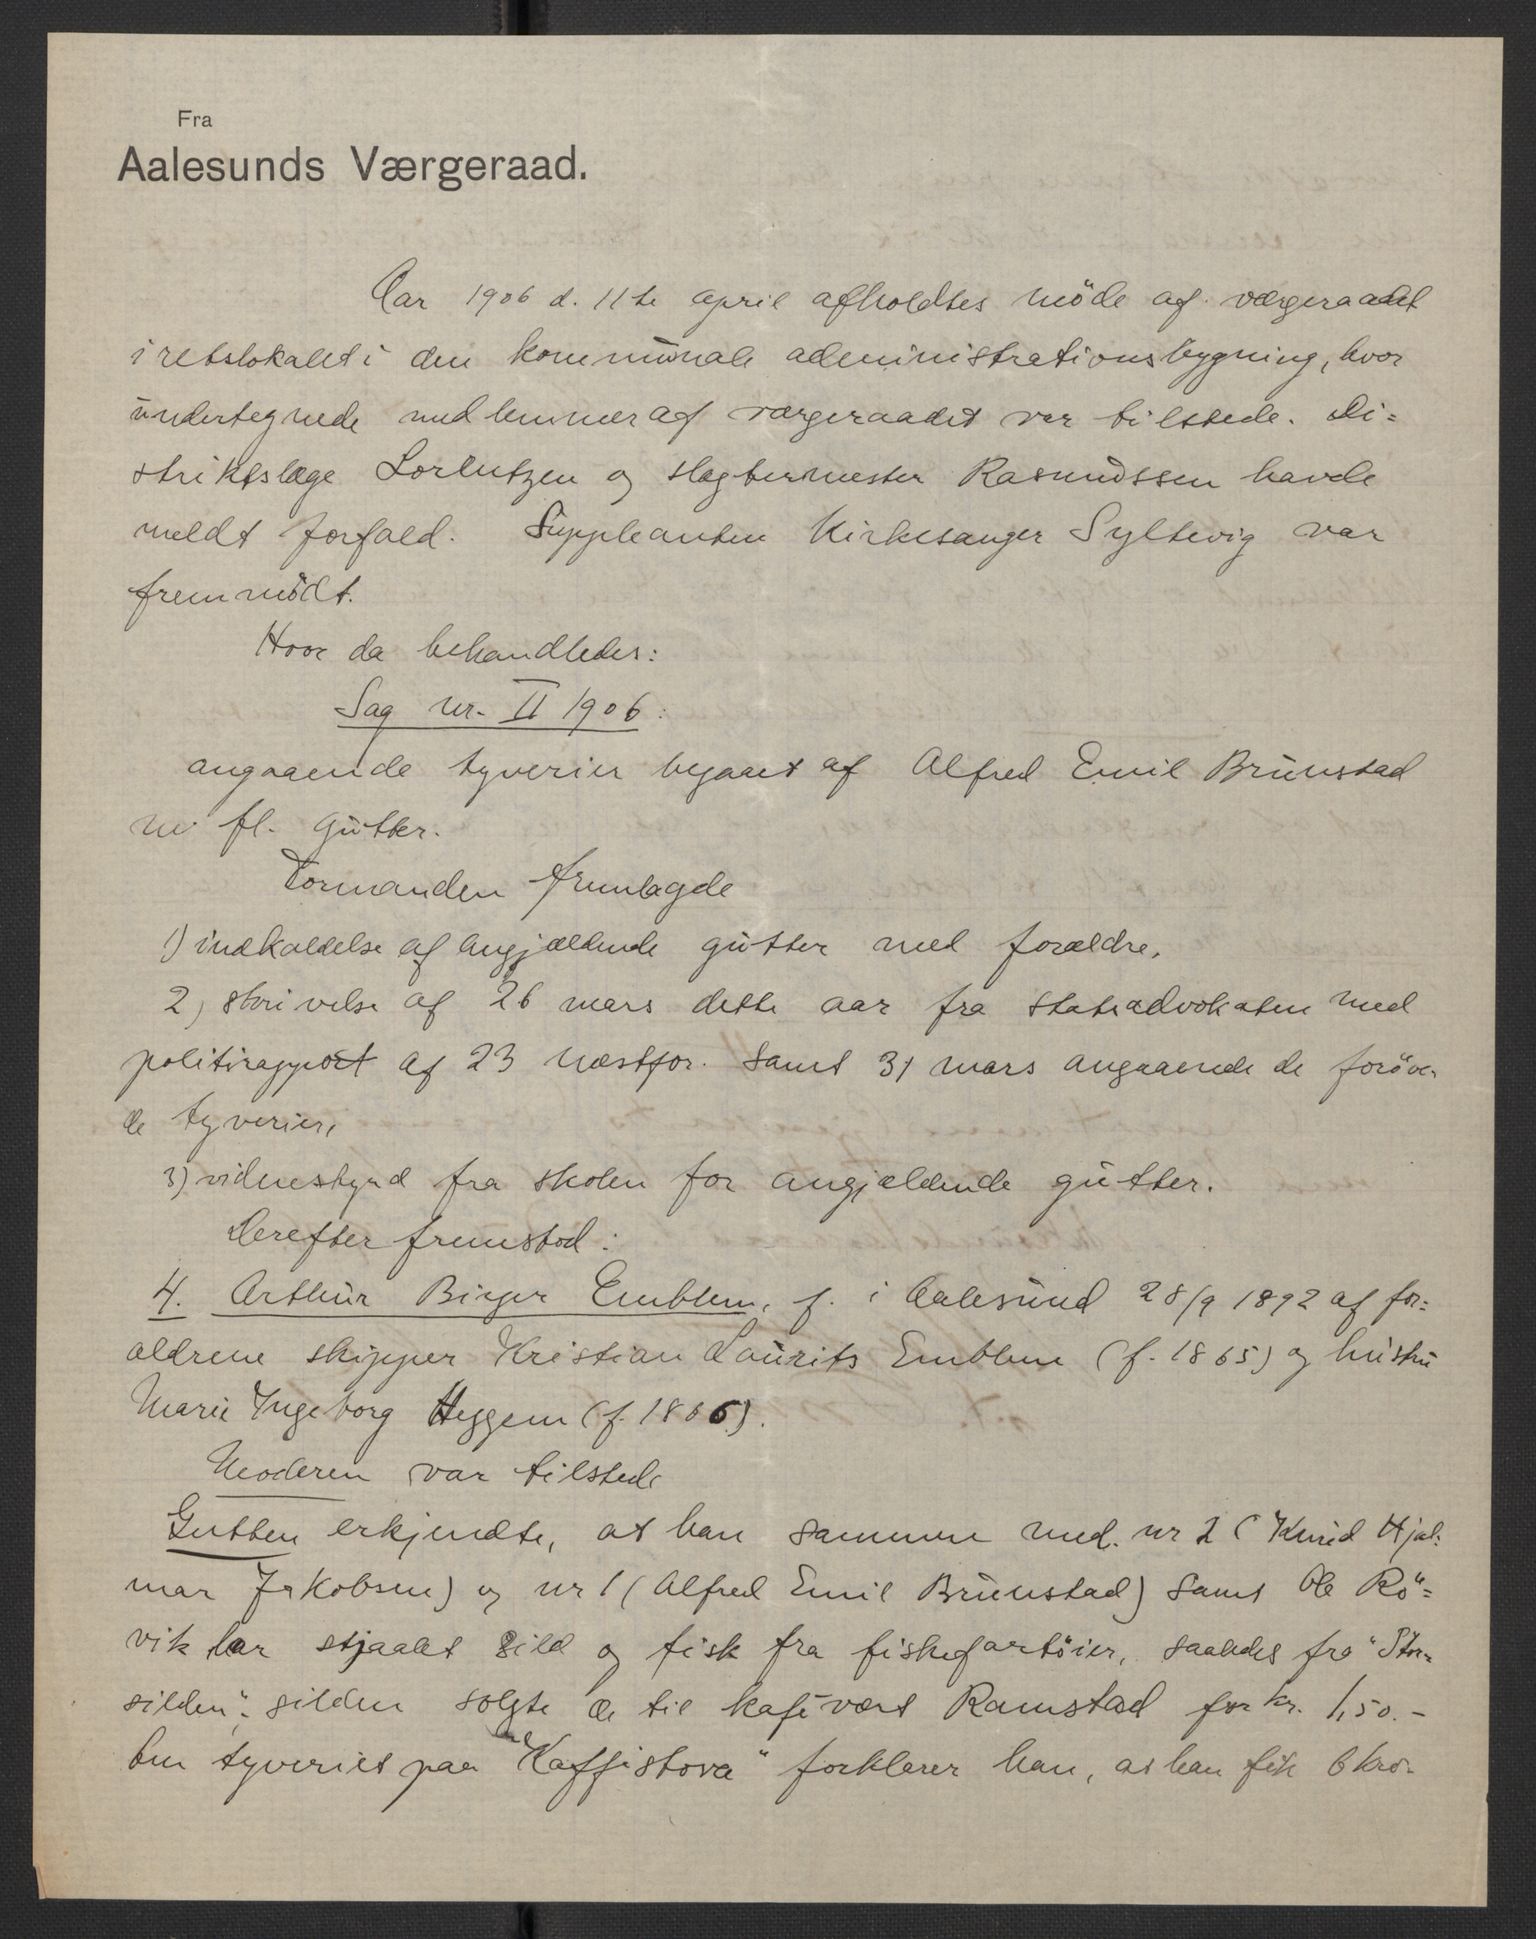 Fra
Aalesunds Værgeraad.
Aar 1906 d. 11te april afholdtes møde af værgeraadet
i retslokalet i den kommunale administrationsbygning, hvor
undertegnede medlemmer af værgeraadet var tilstede. Di=
striktslæge Lorentzen og slagtermester Rasmussen havde
meldt forfald. Suppleanten Kirkesanger Syltevig var
fremmødt.
Hvor da behandledes:
Sag nr. II 1906:
angaaende tyverier begaaet af Alfred Emil Brunstad
m fl. gutter.
Formanden fremlagde
1) indkaldelse af angjældende gutter med forældre,
2) skrivelse af 26 mars dette aar fra statsadvokaten med
politirapport af 23 næstfor. samt 31 mars angaaende de forøve-
de tyverier,
3) vidnesbyrd fra skolen for angjældende gutter.
Derefter fremstod:
4. Arthur Birger Emblem, f. i Aalesund 28/9 1892 af for=
ældrene skipper Kristian Laurits Emblem (f. 1865) og hustru
Marie Ingeborg Heggem (f. 1866).
Moderen var tilstede
Gutten erkjendte, at han sammen med nr 2 (Knud Hjal-
mar Jakobsen) og nr 1 (Alfred Emil Brunstad) samt Ole Rø=
vik har stjaalet sild og fisk fra fiskefartøier, saaledes fra "Stor=
silden"; silden solgte de til kafévært Ramstad for kr. 1,50.-
Om tyveriet paa "Kaffistova" forklarer han, at han fik 6 kro-